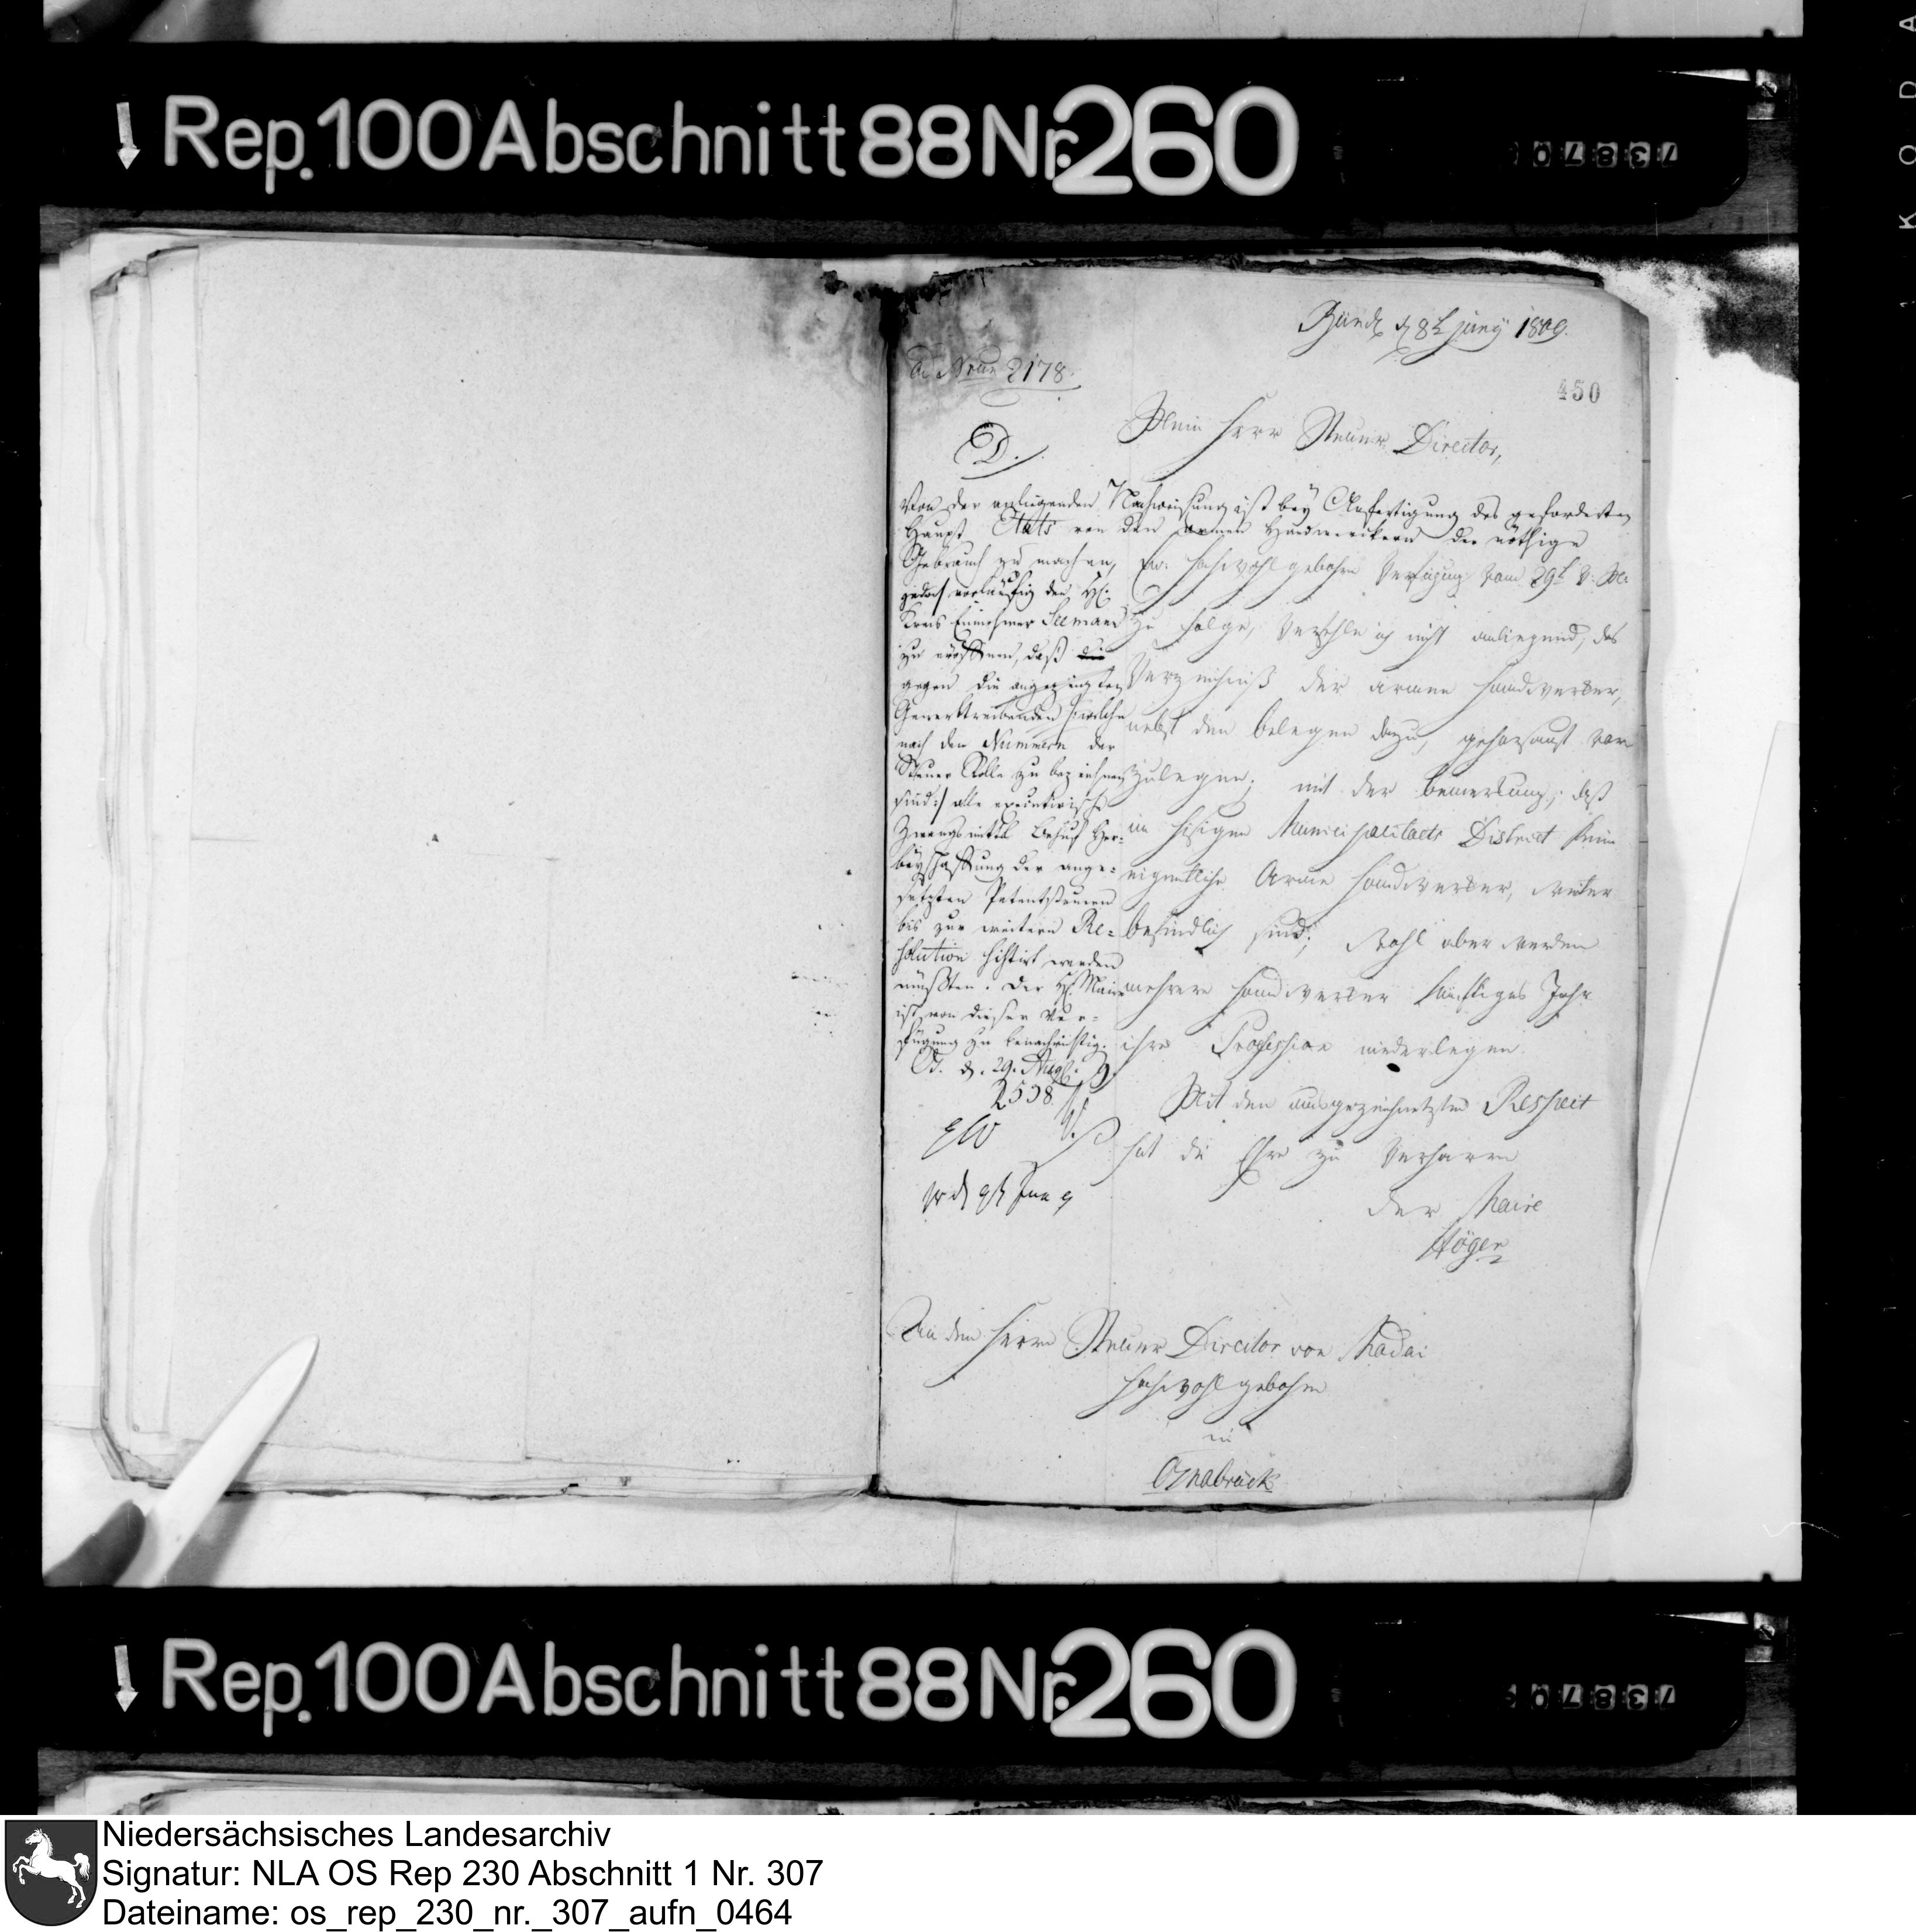 Rep. 100 Abschnitt 88 Nr. 260
73870
KODA
Bünde d 8t Juny 1809.
450
ad Num 2178.
Mein Herr Steuer Director,
D.
Von der anliegenden Nachweisung ist bey Anfertigung des geforderten
Haupt Etats von den armen Handwerkern der nöthige
Gebrauch zu machen,
jedoch vorläufig den H.
Kreis Einnehmer Seemann
zu eröffnen, daß die
gegen die angezeigten
Gewerbtreibenden /:welche
nach den Nummern der
Steuer Rolle zu bezeichnen
sind:/ alle executivische
Zwangsmittel Behuf Her-
beyschaffung der ange-
setzten Patentsteuern
bis zur weitern Re-
solution sistirt werden
müßten. Der H. Maire
ist von dieser Ver-
fügung zu benachrichtig.
O. d. 29. Aug. 9.
2538.
Ew. Hochwohlgebohrn Verfügung vom 29t v. M.
zu folge, verfehle ich nicht anliegend, das
Verzeichniß der armen Handwerker,
nebst den belegen dazu, gehorsamst vor-
zulegen; mit der bemerkung, daß
im hisigen Municipalitaets District keine
eigentliche Arme Handwerker, weiter
befindlich sind; Wohl aber werden
mehrere Handwerker künftiges Jahr
ihre Profession niederlegen.
Mit den ausgezeichnetsten Respect
hat die Ehre zu verharren
der Maire
Höger
pr d 9t Jun 9
An den Herrn Steuer Director von Madai
Hochwohlgebohrn
in
Osnabrück
Rep. 100 Abschnitt 88 Nr. 260
73870
Niedersächsisches Landesarchiv
Signatur: NLA OS Rep 230 Abschnitt 1 Nr. 307
Dateiname: os_rep_230_nr._307_aufn_0464